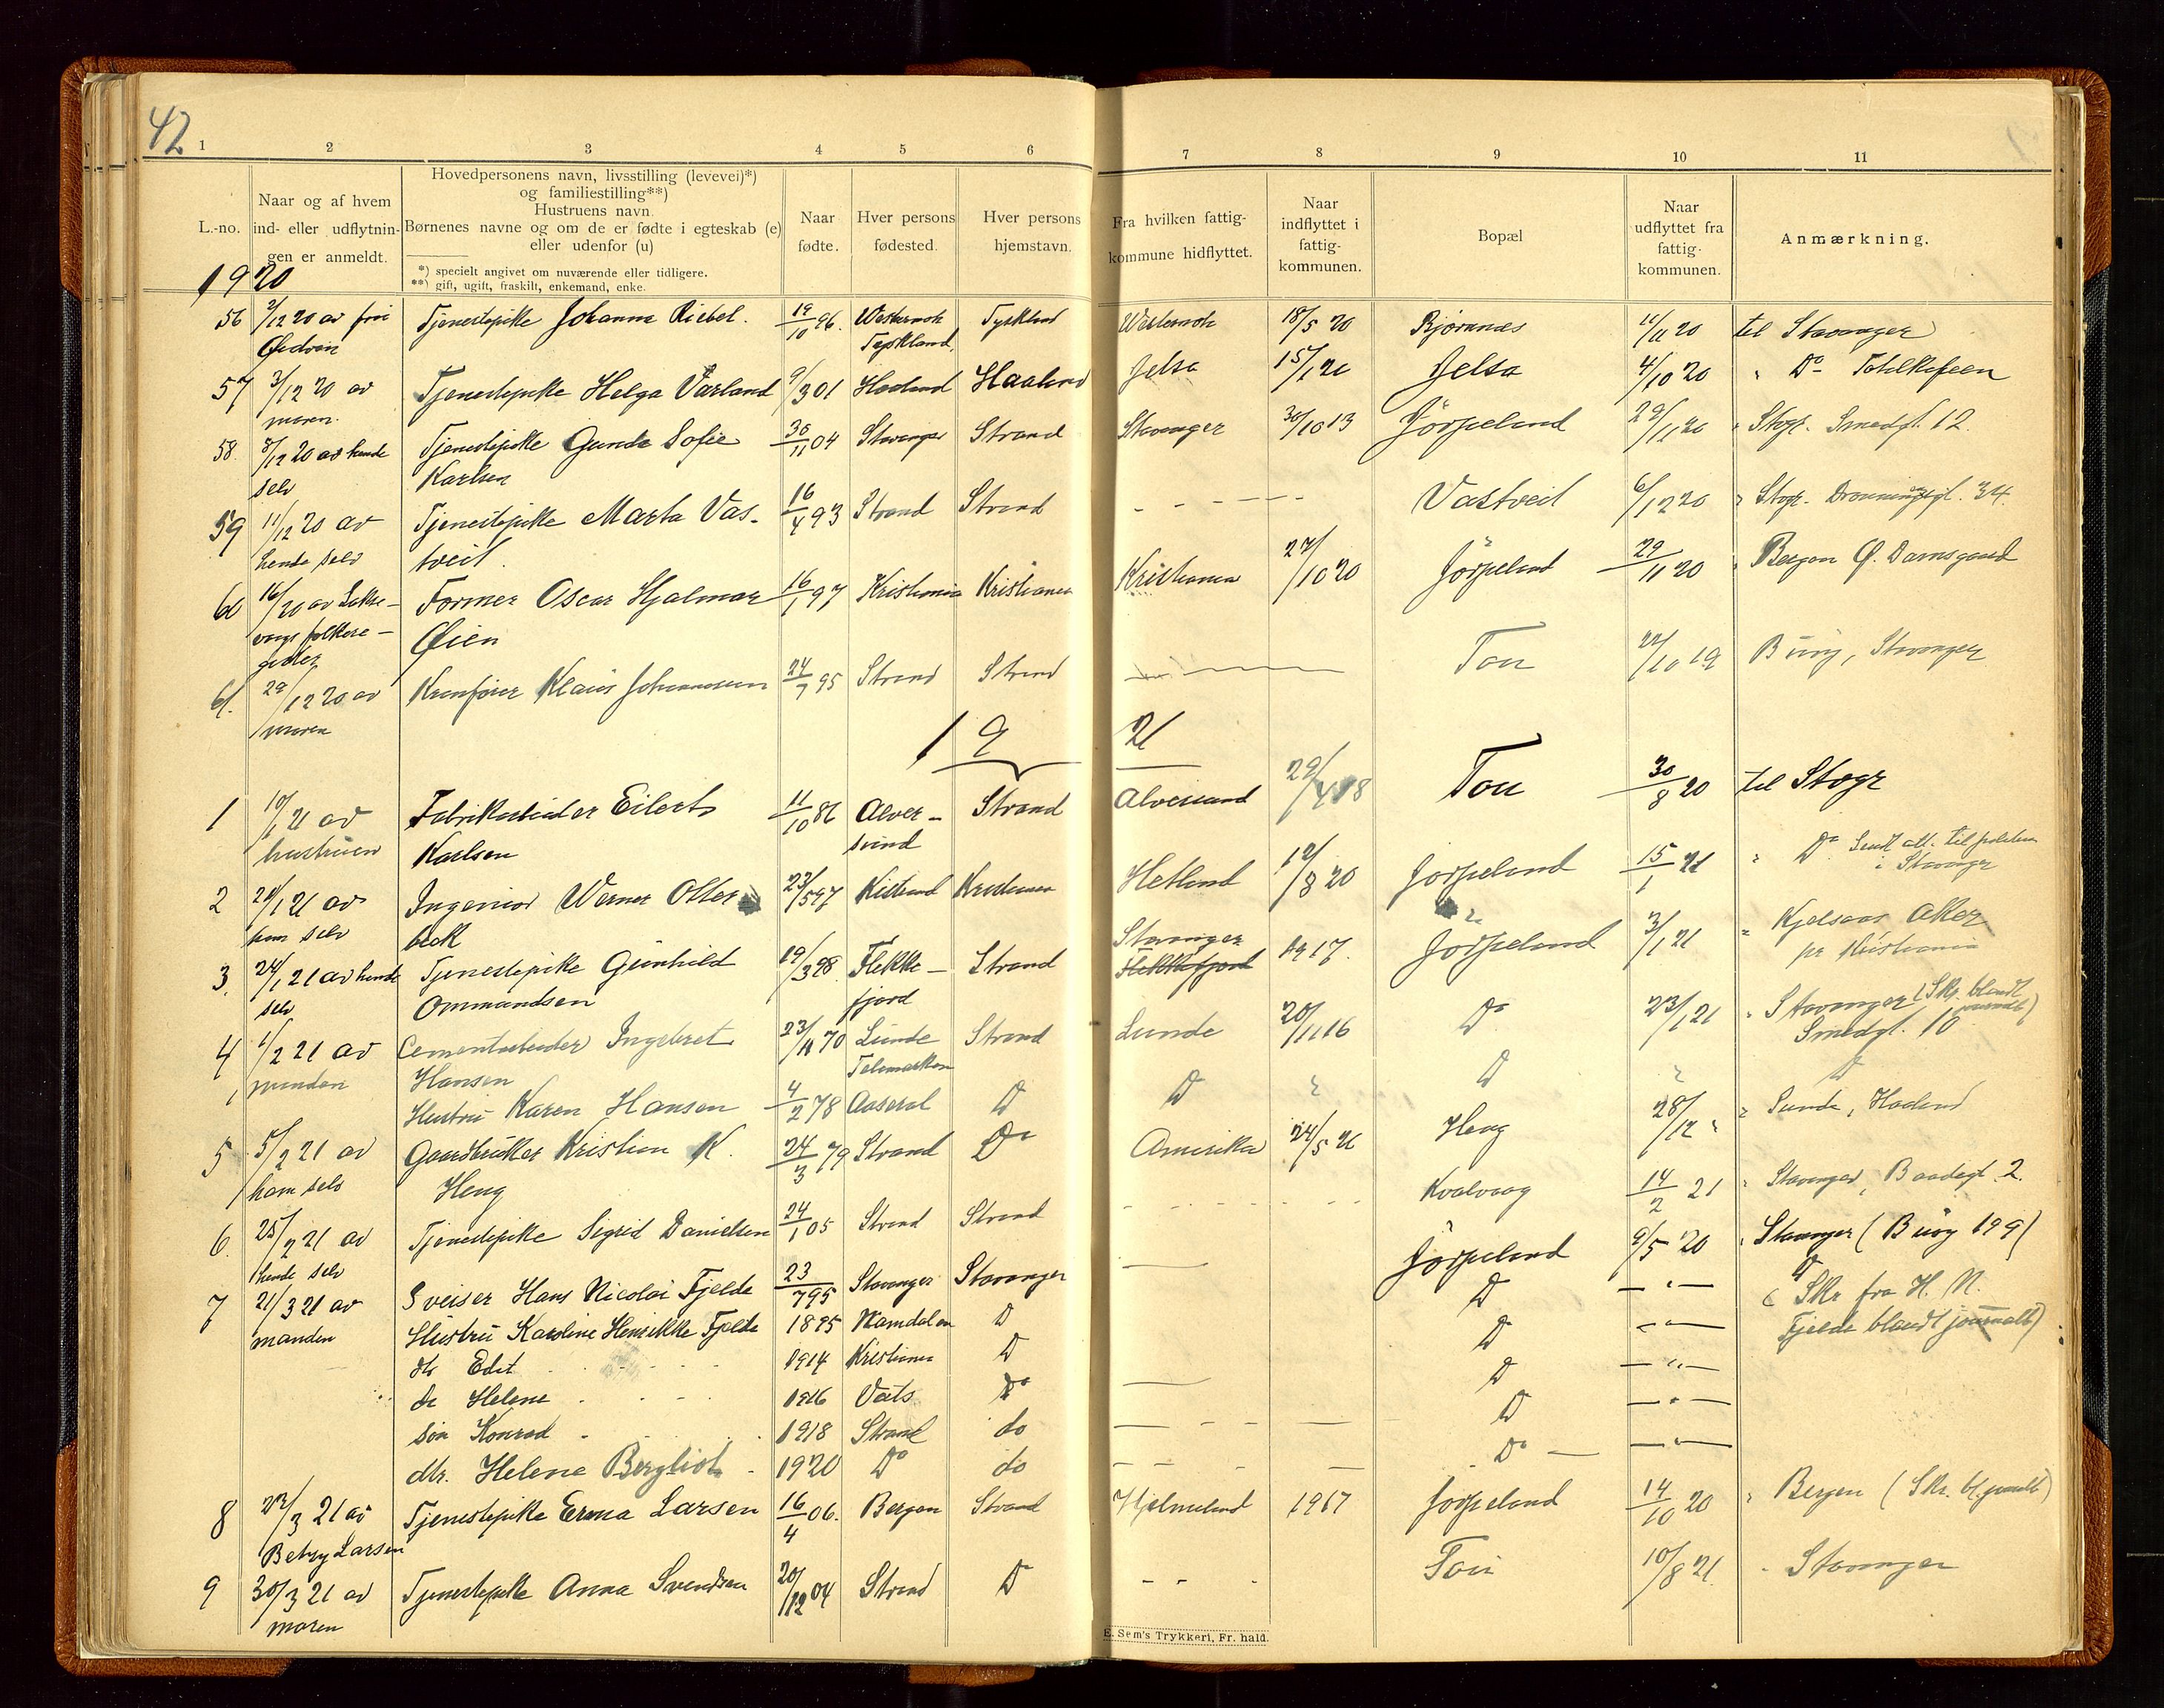 42
1 2 3 4 5 6 7 8 9 10 11
L.-no.
Naar og af hvem
ind- eller udflytnin-
gen er anmeldt.
Hovedpersonens navn, livsstilling (levevei)*)
og familiestilling**)
Hustruens navn.
Børnenes navne og om de er fødte i egteskab (e)
eller udenfor (u)
*) specielt angivet om nuværende eller tidligere.
**) gift, ugift, fraskilt, enkemand, enke.
Naar
fødte.
Hver persons
fødested.
Hver persons
hjemstavn.
Fra hvilken fattig-
kommune hidflyttet.
Naar
indflyttet i
fattig-
kommunen.
Bopæl
Naar
udflyttet fra
fattig-
kommunen.
Anmærkning.
1920
56 2/12 20 av Tjenestepike Johanna 19/10 96. Tyskland 18/5 20 Bjørnnes 11/11 20 til Stavanger
Tyskland
57 3/12 20 av Tjenestepike Helga Varland 9/3 01 Haaland Haaland Jelsa 15/1 20 Jelsa 4/10 20 " Do
moren.
58. 8/12 20 av hende Tjenestepike Gunda Sofie 30/11 04 Stavanger Strand Stavanger 30/10 13 Jörpeland 29/11 20 " Stvgr. Smedgt. 12.
selv Karlsen
59 11/12 20 av Tjenestepike Marta Vas- 16/4 93 Strand Strand - - - Vastveit 6/12 20 " Stvgr. Dronningsgt. 34.
hende selv tveit.
60 16/ 20 av Lakse- Former Oscar Hjalmar 16/1 97 Kristiania Kristiania Kristiania 27/10 20 Jörpeland 29/11 20 " Bergen Damsgaard
vaags folkere- Øien
gister
61. 29/12 20 av Klaus Johannesen 24/7 95 Strand Strand Tou 22/10 19 Buøy, Stavanger
moren
1921
1 10/1 21 av Fabrikarbeider Eilert 11/10 86 Alver- Strand Alversund 29/ 18 Tou 30/8 20 til Stvgr
hustruen Karlsen sund
2 20/1 21 av Ingeniør Werner Otter 23/5 97 Kristiania Hetland 12/8 20 Jörpeland 15/1 21 " Do Sendt att. til politiet
i Stavanger
ham selv bek
3. 24/1 21 av hende Tjenestepike Gunhild 19/3 98 Flekke- Strand Stavanger 17. Jörpeland 3/1 21 " Kjelsaas Aker
Flekkefjord
pr Kristiania
selv Ommundsen fjord
4 1/2 21 av Cementarbeider Ingebret 23/11 70 Lunde Strand Lunde 20/11 16 Do 23/1 21 " Stavanger (Skr. blandt
Smedgt. 10
manden Hansen Telemarken
Hustru Karen Hansen 4/2 78 Aaseral Do Do " Do " Do
5 5/2 21 av Gaardbruker Kristian K. 24/3 79 Strand Do Amerika 24/5 20 Heng 28/12 " " Sunde, Haaland
ham selv Heng
6. 25/2 21 av Tjenestepike Sigrid Danielsen 24/1 05 Strand Strand - - - Kvalvaag 14/2 21 " Stavanger, Baadegt. 2.
hende selv
7 21/3 21 av Sveiser Hans Nicolai Fjelde 23/7 95 Stavanger Stavanger — Jörpeland 9/5 20 " Stavanger (Buøy 199)
manden Hustru Karoline Henrikke Fjelde 1895 Namdalen Do Do — " — (Skr fra H. N.
dtr Edit 1914 Kristiania Do Do — " — Fjelde blandt journalb)
dr Helene 1916 Vats Do — Do — " —
søn Konrad 1918 Strand do — Do — " —
dtr. Helene Bergliot 1920 Do do — Do — " —
8 22/3 21 av Tjenestepike Erna Larsen 16/4 06. Bergen Strand Hjelmeland 1917 Jörpeland 14/10 20 " Bergen (Skr. bl. journalb)
Betzy Larsen
9 30/3 21 av Tjenestepike Anna Svendsen 20/12 04 Strand Do - - - Tou 10/8 21. " Stavanger
moren
E. Sem's Trykkeri, Fr. hald.